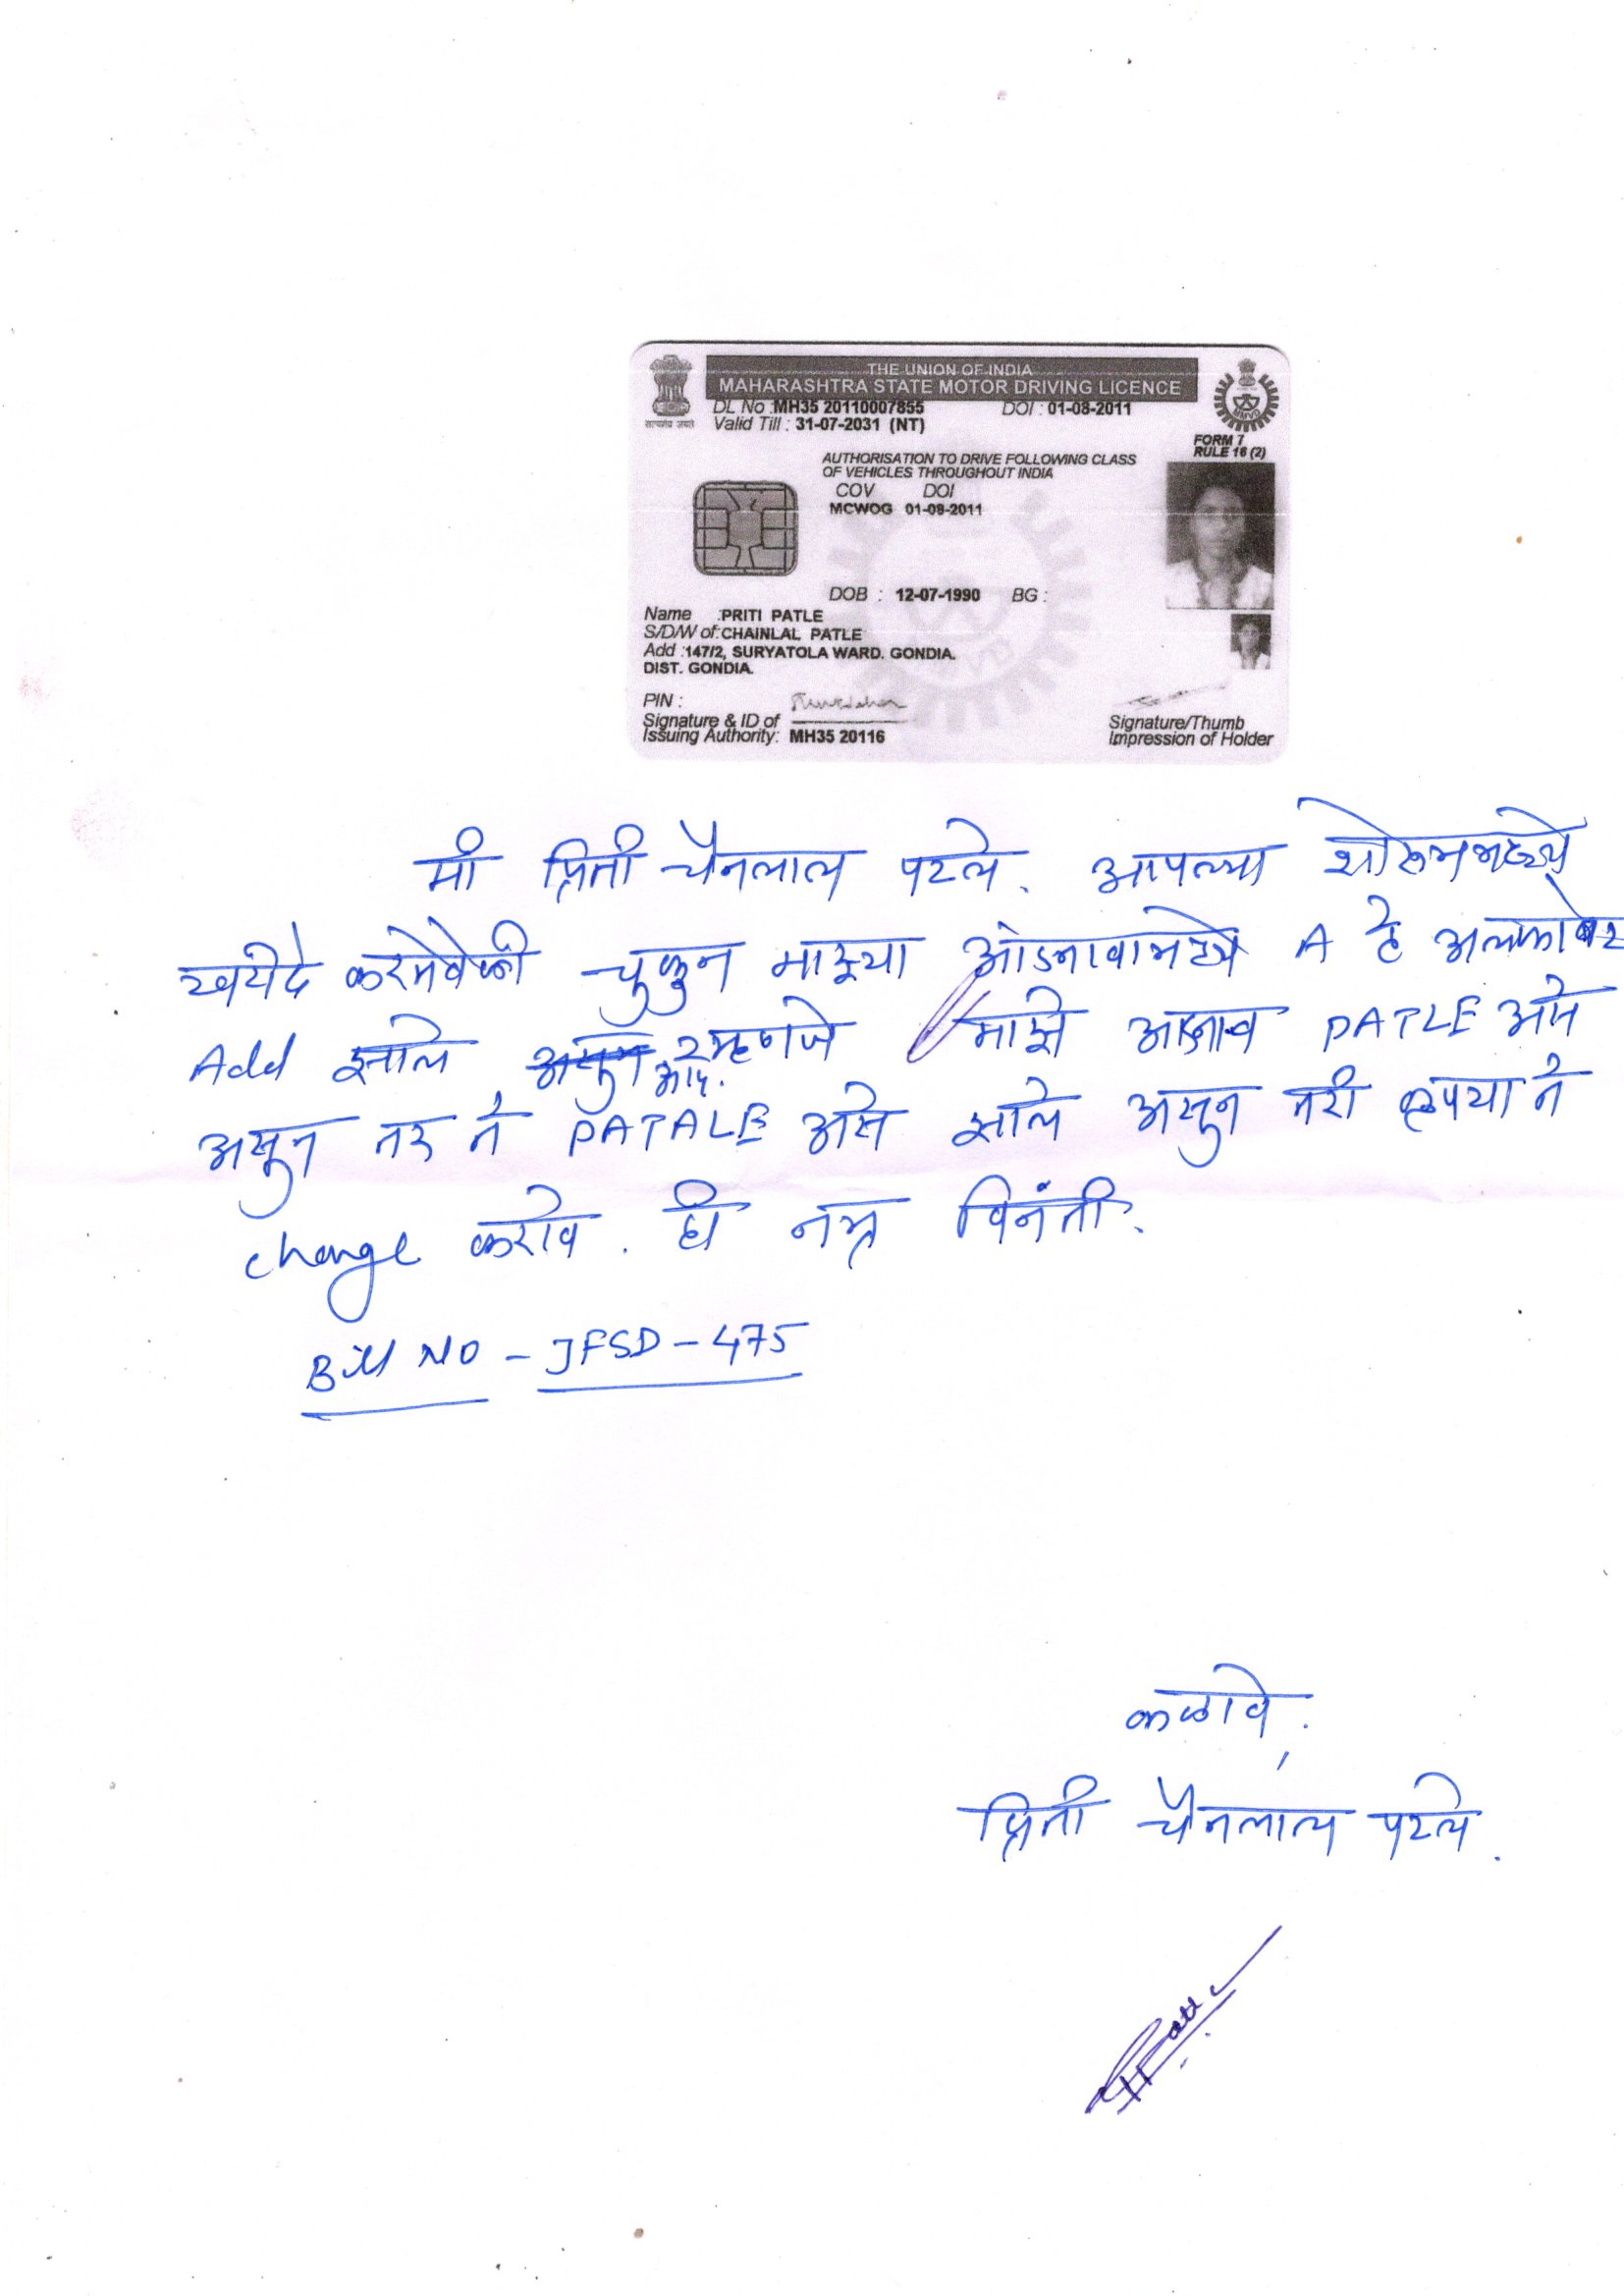 THE UNION OF INDIA
MAHARASHTRA STATE MOTOR DRIVING LICENCE
DL No :MH35 20110007855 DOI : 01-08-2011
Valid Till : 31-07-2031 (NT)
सत्यमेव जयते
MMVD
FORM 7
RULE 16 (2)
AUTHORISATION TO DRIVE FOLLOWING CLASS
OF VEHICLES THROUGHOUT INDIA
COV DOI
MCWOG 01-08-2011
DOB : 12-07-1990 BG :
Name :PRITI PATLE
S/D/W of:CHAINLAL PATLE
Add :147/2, SURYATOLA WARD. GONDIA.
DIST. GONDIA.
PIN :
Signature & ID of
Issuing Authority: MH35 20116
Signature/Thumb
Impression of Holder
मी प्रिती चैनलाल पटले. आपल्या शोरूममध्ये
खरीदी करतेवेळी चुकुन माझ्या आडनावामध्ये A हे
Add झाले म्हणजे माझे आडनाव PATLE असे
असुन तर ते PATALE असे झाले असुन तरी कृपया ते
change करावे. ही नम्र विनंती.
Bill NO - JFSD - 475
कळावे,
प्रिती चैनलाल पटले.